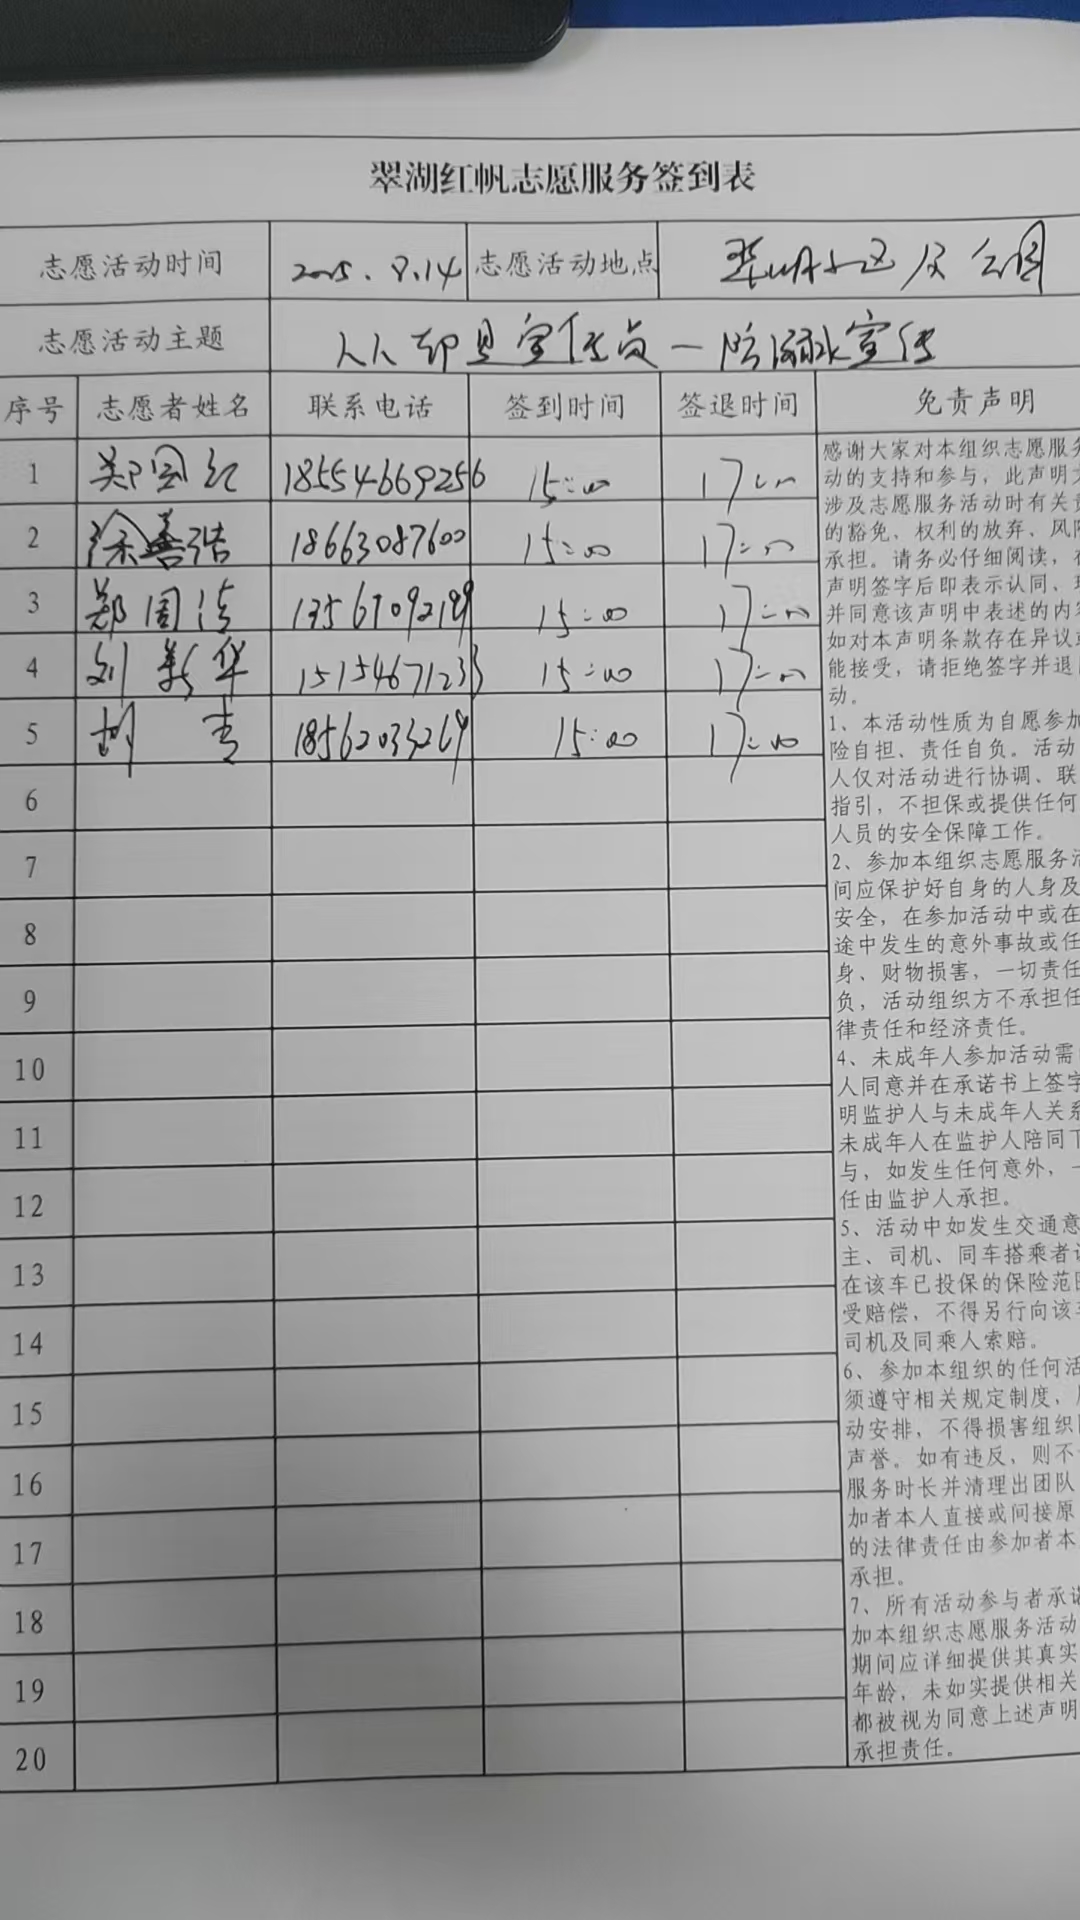 翠湖红帆志愿服务签到表
志愿活动时间 2025.8.14 志愿活动地点 翠湖小区及公园
志愿活动主题 人人都是宣传员一防溺水宣传
序号 志愿者姓名 联系电话 签到时间 签退时间 免责声明
1 郑国红 18554669256 15:00 17:00
2 徐善浩 18663087600 15:00 17:00
3 郑周洁 13567092199 15:00 17:00
4 刘新华 15154671233 15:00 17:00
5 胡青 18562033269 15:00 17:00
6
7
8
9
10
11
12
13
14
15
16
17
18
19
20
感谢大家对本组织志愿服务
动的支持和参与，此声明
涉及志愿服务活动时有关
的豁免，权利的放弃、风险
承担。请务必仔细阅读，
声明签字后即表示认同、
并同意该声明中表述的内容
如对本声明条款存在异议
能接受，请拒绝签字并退
动。
1、本活动性质为自愿参加
险自担、责任自负。活动
人仅对活动进行协调、联
指引，不担保或提供任何
人员的安全保障工作。
2、参加本组织志愿服务活
间应保护好自身的人身及
安全，在参加活动中或在
途中发生的意外事故或任
身、财物损害，一切责任
负，活动组织方不承担任
律责任和经济责任。
4、未成年人参加活动需
人同意并在承诺书上签字
明监护人与未成年人关系
未成年人在监护人陪同下
与，如发生任何意外，一
任由监护人承担。
5、活动中如发生交通意
主、司机、同车搭乘者
在该车已投保的保险范围
受赔偿，不得另行向该车
司机及同乘人索赔。
6、参加本组织的任何活
须遵守相关规定制度，
动安排，不得损害组织
声誉。如有违反，则不
服务时长并清理出团队
加者本人直接或间接原
的法律责任由参加者本
承担。
7、所有活动参与者承诺
加本组织志愿服务活动
期间应详细提供其真实
年龄，未如实提供相关
都被视为同意上述声明
承担责任。